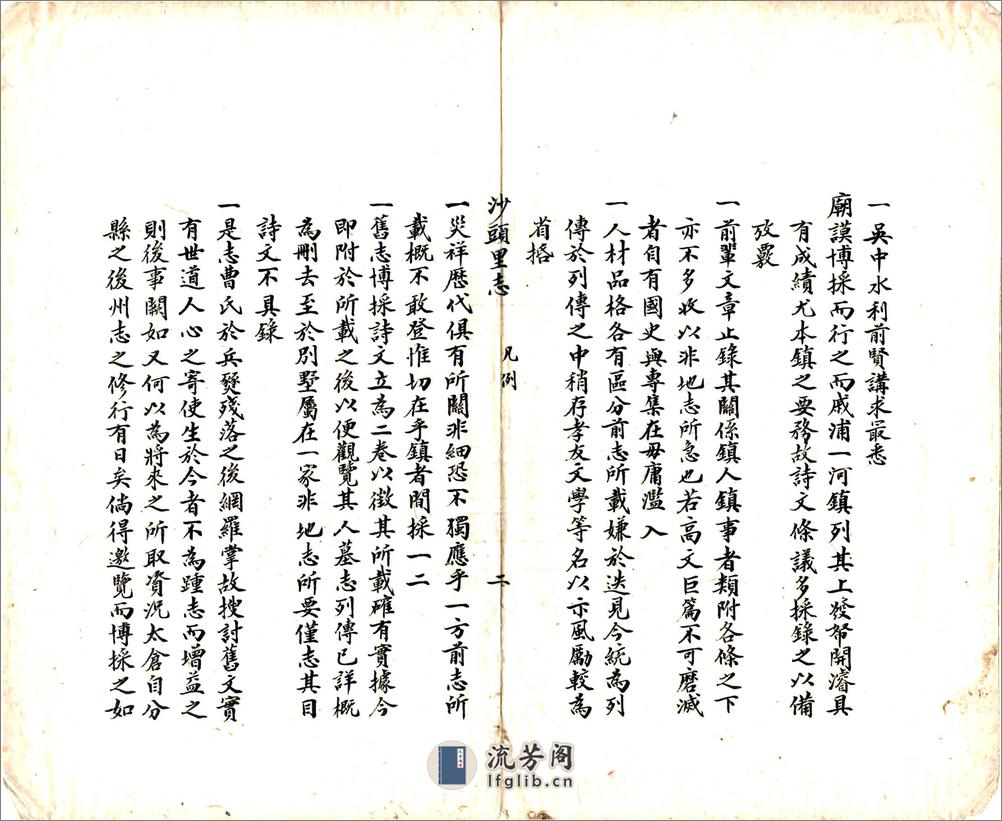 一吳中水利前賢講求最悉
廟謨博採而行之而戚浦一河鎮列其上發帑開濬具
有成績尤本鎮之要務故詩文條議多採錄之以備
攷覈
一前輩文章止錄其關係鎮人鎮事者類附各條之下
亦不多收以非地志所急也若高文巨篇不可磨滅
者自有國史與專集在毋庸濫入
一人材品格各有區分前志所載嫌於迭見今統為列
傳於列傳之中稍存孝友文學等名以示風勵較為
省揢
沙頭里志 凡例 二
一災祥歷代俱有所關非細恐不獨應乎一方前志所
載概不敢登惟切在乎鎮者間採一二
一舊志博採詩文立為二卷以徵其所載確有實據今
即附於所載之後以便觀覽其人墓志列傳已詳概
為刪去至於別墅屬在一家非地志所要僅志其目
詩文不具錄
一是志曹氏於兵燹殘落之後網羅掌故搜討舊文實
有世道人心之寄使生於今者不為踵志而增益之
則後事闕如又何以為將來之所取資況太倉自分
縣之後州志之修行有日矣倘得邀覽而博採之如
流芳阁
lfglib.cn